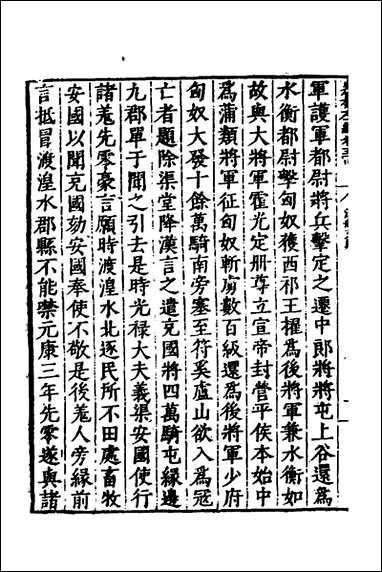 軍護軍都尉將兵擊定之遷中郎將將屯上谷還爲
水衡都尉擊匈奴獲西祁王擢爲後將軍兼水衡如
故與大將軍霍光定册尊立宣帝封營平侯本始中
爲蒲類將軍征匈奴斬虜數百級還爲後將軍少府
匈奴大發十餘萬騎南旁塞至符奚廬山欲入爲冦
亡者題除渠堂降漢言之遣充國將四萬騎屯縁邊
九郡單于聞之引去是時光禄大夫義渠安國使行
諸羗先零豪言願時渡湟水北逐民所不田處畜牧
安國以聞充國劾安國奉使不敬是後羗人旁縁前
言抵冒渡湟水郡縣不能禁元康三年先零遂與諸